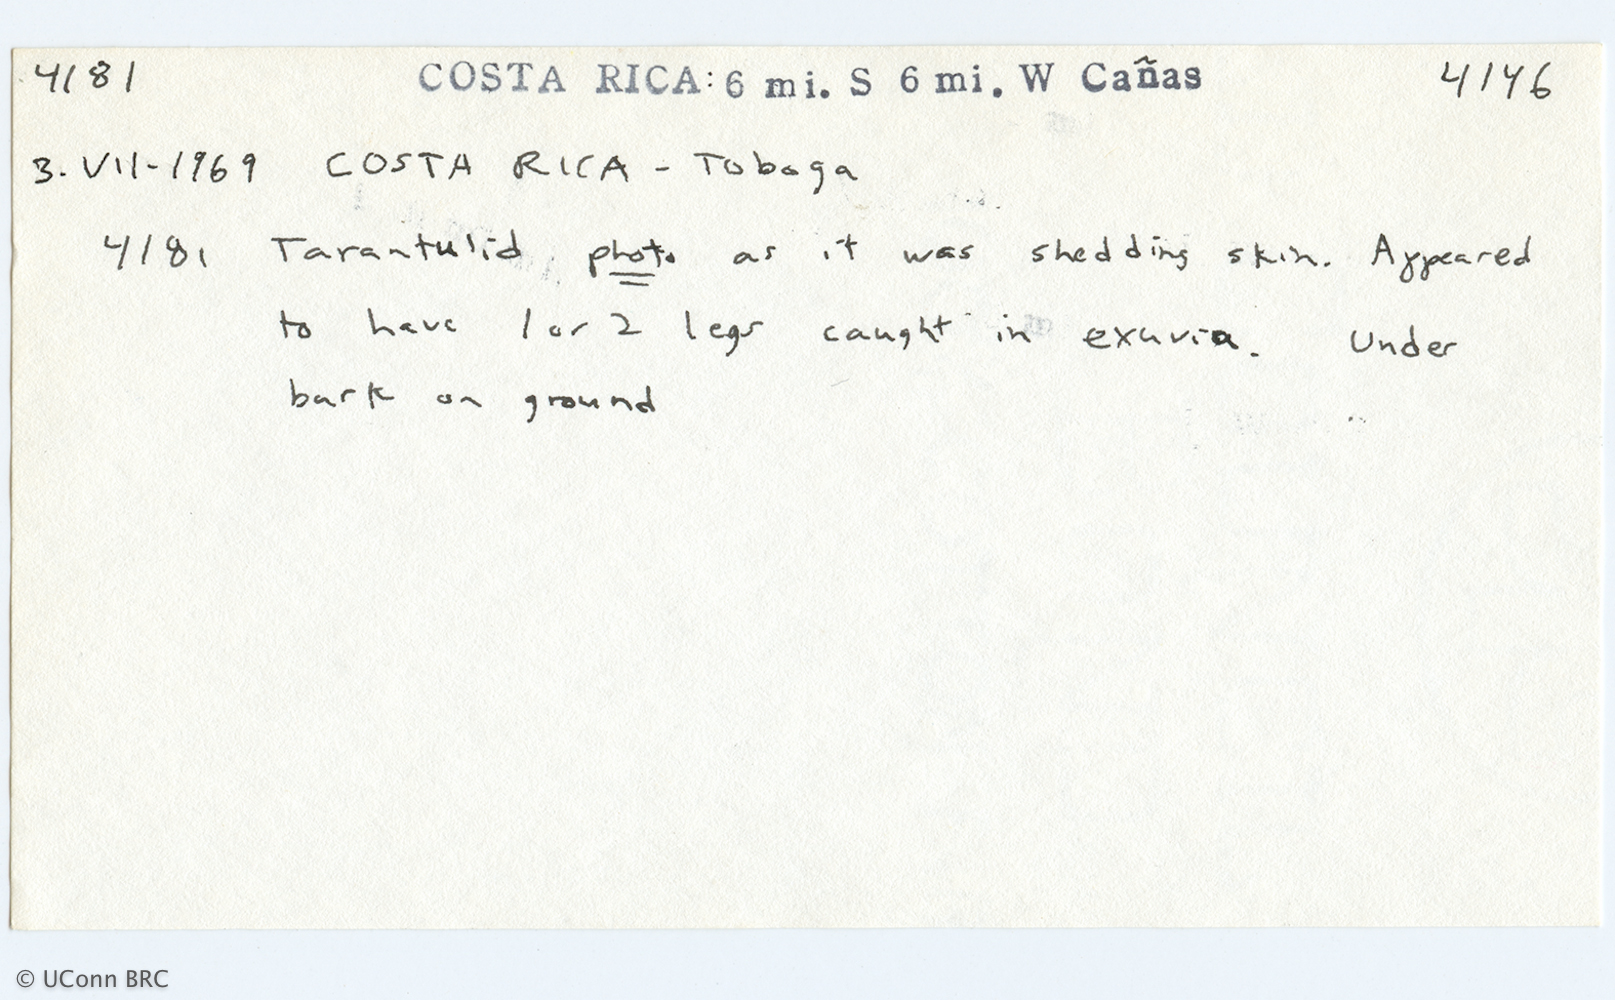 4181 COSTA RICA: 6 mi. S 6 mi. W Cañas 4146
3. VII-1969 COSTA RICA - Taboga
4181 Tarantulid photo as it was shedding skin. Appeared
to have 1 or 2 legs caught in exuvia. Under
bark on ground
© UConn BRC